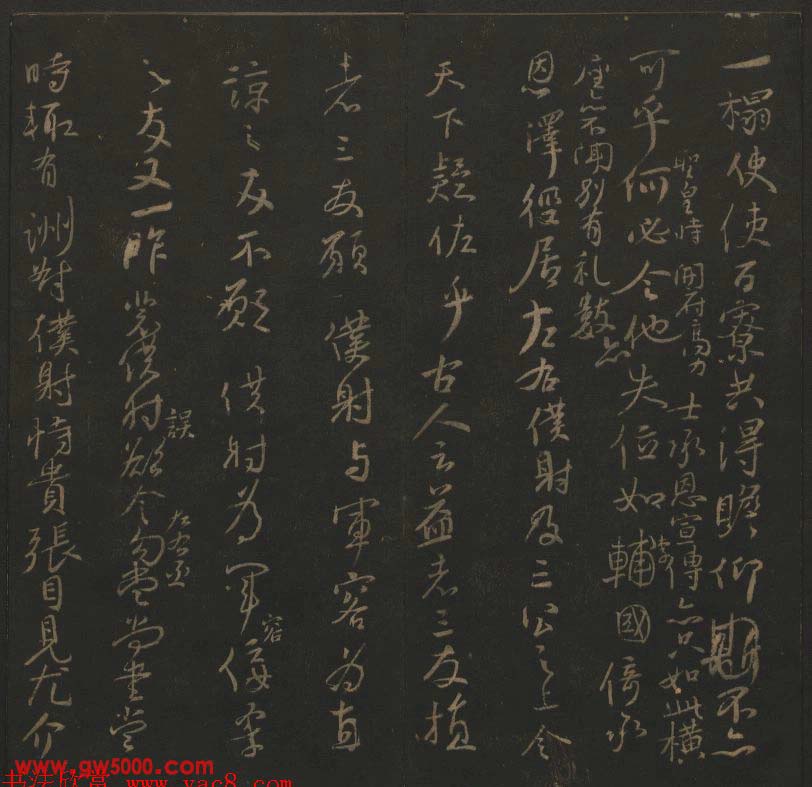 一榻使使百寮共得瞻仰不亦
可乎何必令他失位如輔國倚承
聖皇時開府高力士承恩宣傳亦只如此橫
座亦不聞別有禮數亦
恩澤徑居左右僕射及三公之上令
天下疑怪乎古人云益者三友損
者三友願僕射與軍容為直
諒之友不願僕射為軍容佞柔
之友又一昨裴僕射誤欲令左右丞勾當尚書當
時輒有訓對僕射恃貴張目見尤介
www.gw5000.com
书法欣赏 www.yac8.com